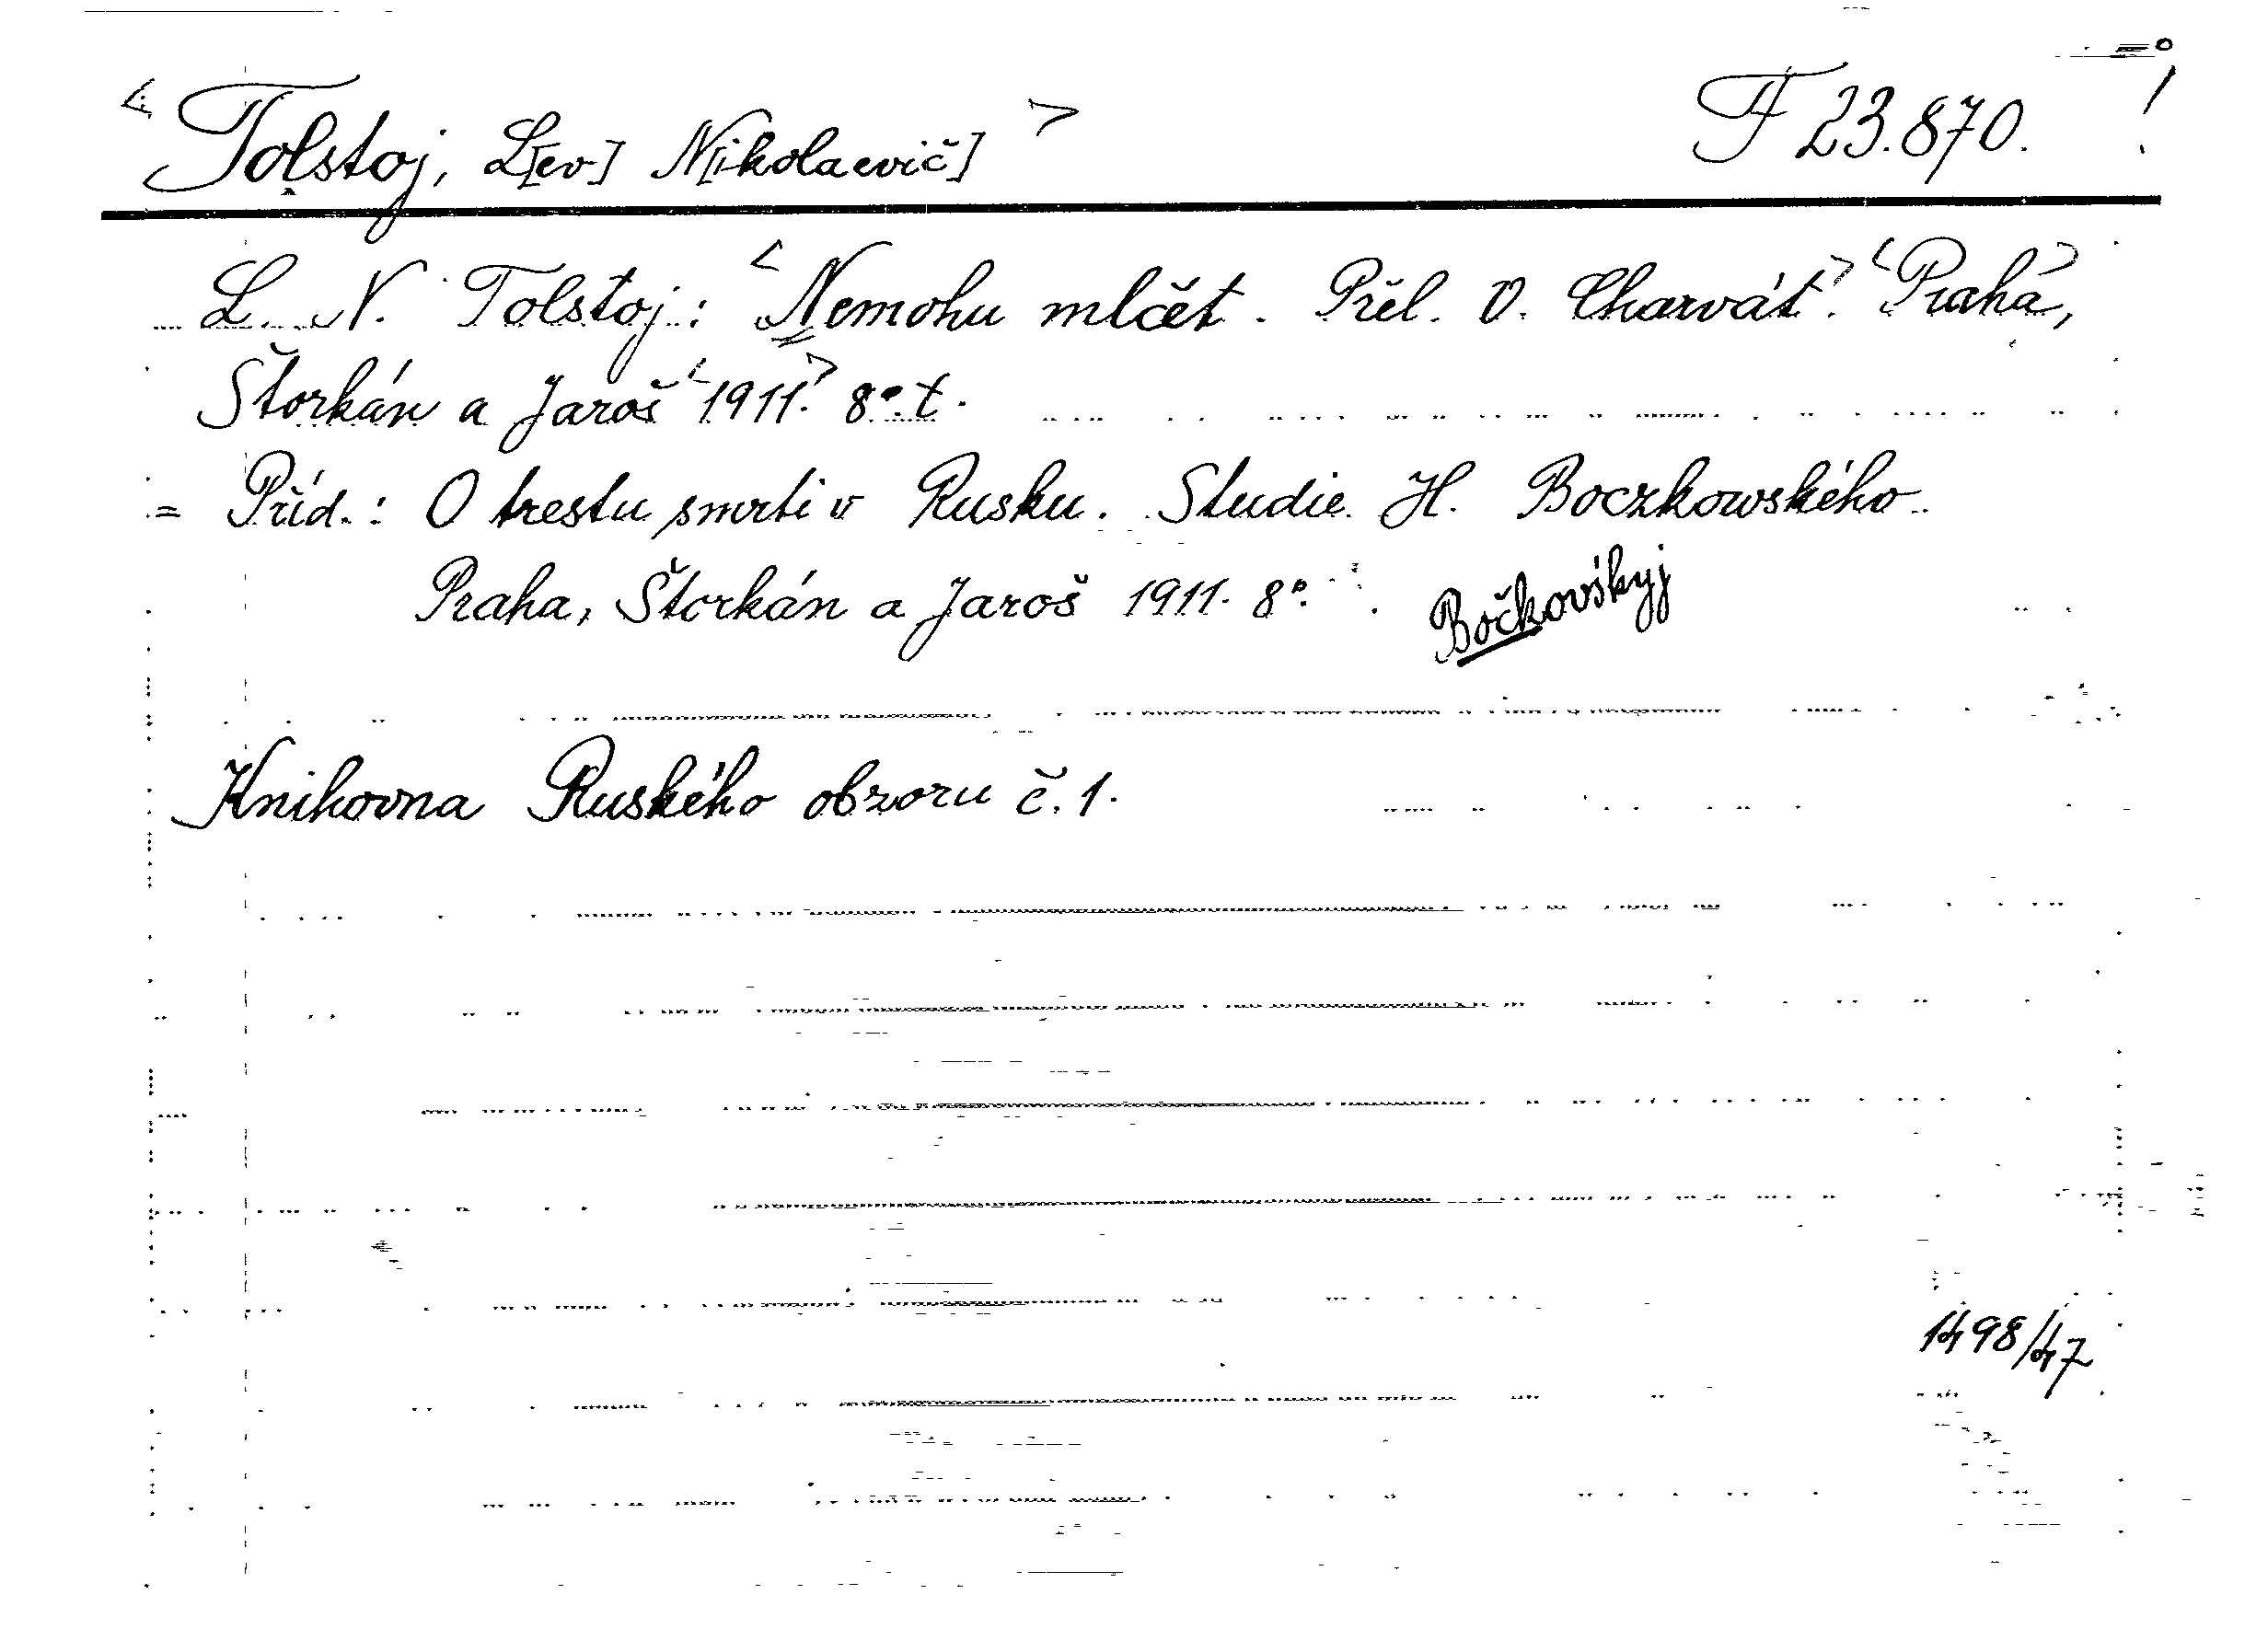 <Tolstoj, L[ev] N[ikolaevič]> F 23.870. !
L. N. Tolstoj: <Nemohu mlčet. Přel. V. Charvát.> <Praha>,
Štorkán a Jaroš <1911.> 8°. t.
= Příd.: O trestu smrti v Rusku. Studie H. Boczkowského.
Praha, Štorkán a Jaroš 1911. 8°. Bočkovśkyj
Knihovna Ruského obzoru č. 1.
1498/47